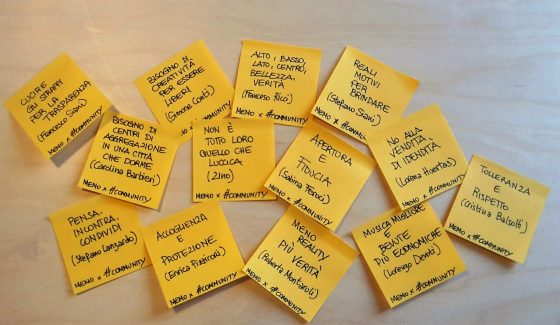 CUCIRE
GLI STRAPPI
PER LA
TRASPARENZA
(Francesco Siani)
MEMO x #COMMUNITY
BISOGNO DI
CREATIVITÀ
PER ESSERE
LIBERI
(Simone Conti)
MEMO x #COMMUNITY
ALTO, BASSO,
LATO, CENTRO,
BELLEZZA,
VERITÀ
(Francesco Ricci)
MEMO x #COMMUNITY
REALI
MOTIVI
PER
BRINDARE
(Stefano Siani)
MEMO x #COMMUN
BISOGNO DI
CENTRI DI
AGGREGAZIONE
IN UNA CITTÀ
CHE DORME
(Carolina Barbieri)
MEMO x #COMMUNITY
NON È
TUTTO LORO
QUELLO CHE
LUCCICA
(Zino)
MEMO x #COMMUNITY
APERTURA
E
FIDUCIA
(Sabina Feroci)
MEMO x #COMMUNITY
NO ALLA
VENDITA
DI IDENTITÀ
(Lorena Huertas)
MEMO x #COMMUNITY
TOLLERANZA
E
RISPETTO
(Cristina Balsotti)
MEMO x #COMMUNITY
PENSA,
INCONTRA,
CONDIVIDI
(Stefano Lanzardo)
MEMO x #COMMUNITY
ACCOGLIENZA
E
PROTEZIONE
(Enrica Pizzicori)
MEMO x #COMMUNITY
MENO
REALITY
PIÙ VERITÀ
(Roberto Montanuli)
MEMO x #COMMUNITY
MUSICA MIGLIORE
E
BEVUTE
PIÙ ECONOMICHE
(Lorenzo Devoti)
MEMO x #COMMUNITY